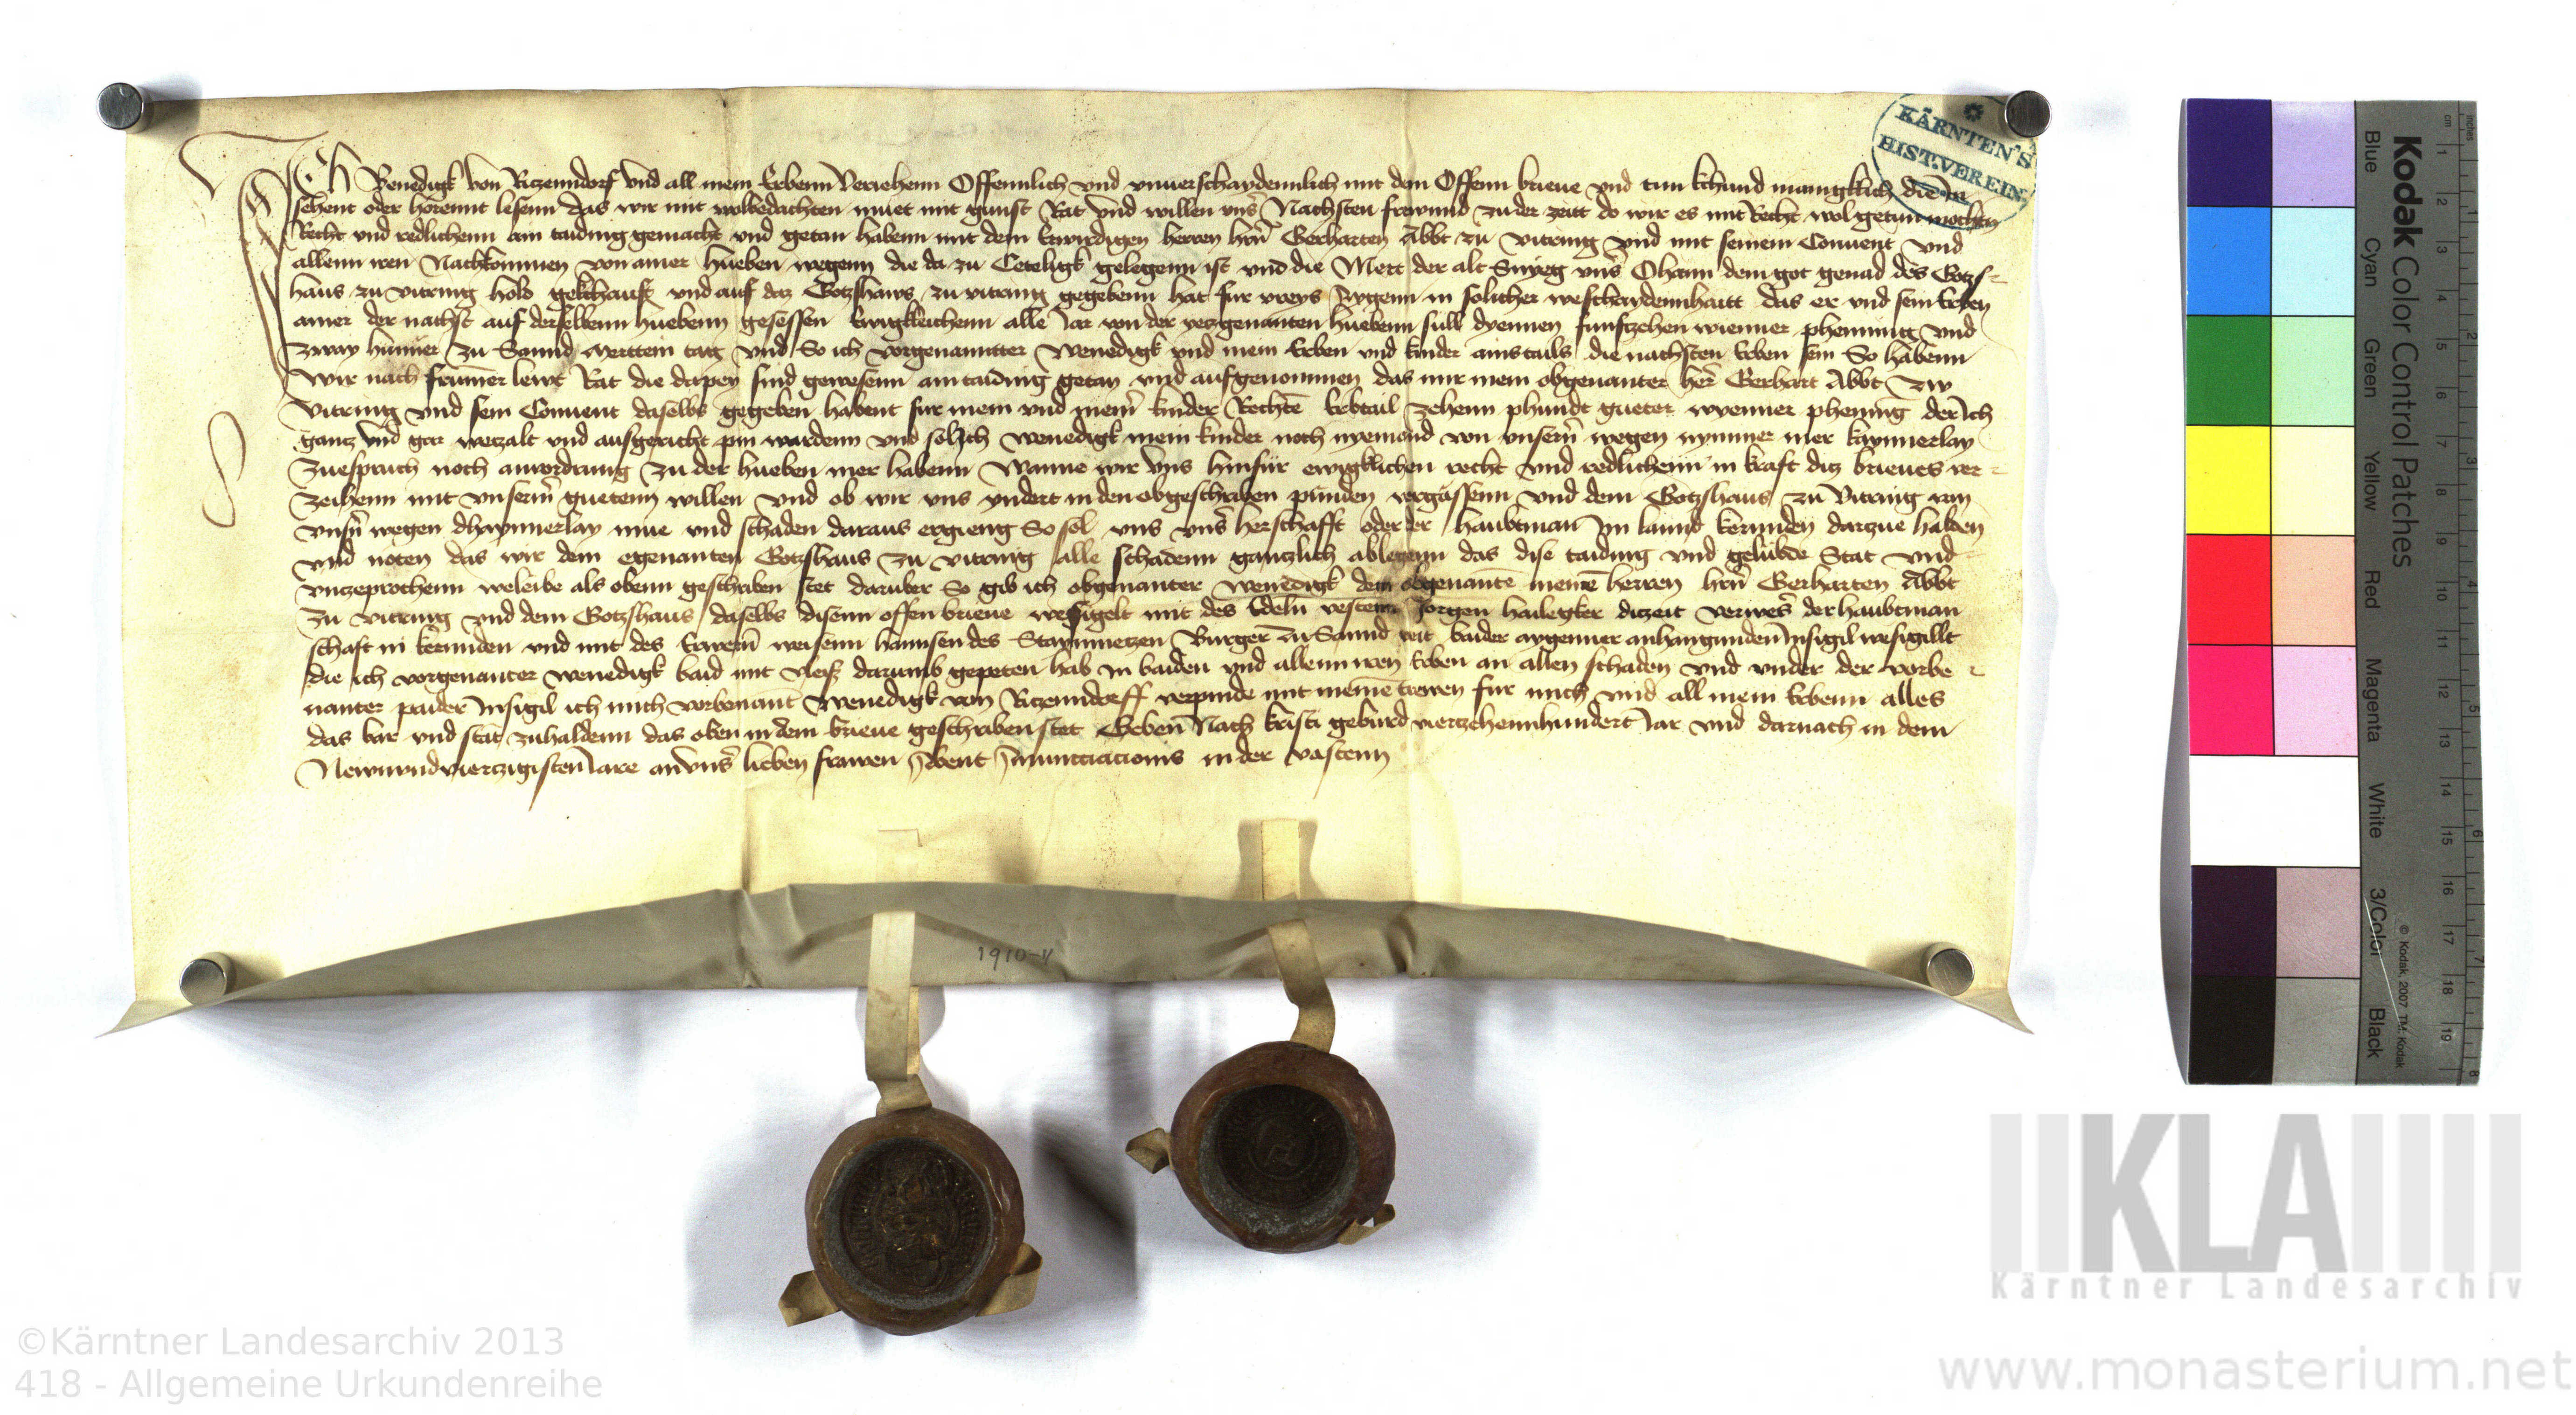 Ich Benedigk von Riczenndorf vnd all mein Erbenn veriehenn Offennlich vnd vnuerschaydennlich mit dem Offenn brieue vnd tun kchund manigklich die in
sehent oder horennt lesenn das wir mit wolbedachten muet mit gunst Rat vnd willen vnser Nachsten frewnnd zu der zeitt do wir es mit Recht wol getun mochten
Recht vnd redlichenn ain taiding gemacht vnd getan habenn mit dem Erwirdigen herren hern Gerharten Abbt zu vitring vnd mit seinem Conuent vnd
allenn iren Nachkommen von ainer hueben wegenn die da zu gelegenn ist vnd die Mert der alt vnser Ohaim dem got genad des Gotzs
haus zu vitring hold gekchauft vnd auf daz Gotzshaws zu vitring gegebenn hat fur vreys Aygenn in solicher weschaydennhaitt das er vnd sein Erben
ainer der nachst auf derselbenn huebenn gesessen Ewigkleichenn alle Jar von der yetzgenanten huebenn sull dyennen funfczehen wienner phenning vnd
zway hunner zu Sannd Merttein tag vnd So ich vorgenannter Wenedigk vnd mein Erben vnd kinder ains tails die nachsten Erben sein So habenn
wir nach frumer lewt Rat die dapey sind gewesenn ain taiding getan vnd aufgenommen das mir mein obgenanter her Gerhart Abbt zw
Vitring vnd sein Conuent daselbs gegeben habent fur mein vnd meiner kinder Rechte Erbtail zehenn phundt gueter wyenner phening der Ich
gantz vnd gar wetzalt vnd ausgericht pin wardenn vnd sol ich Wenedigk mein kinder noch nyemand von vnsern wegen nymmer mer kaynnerlay
zuespruch noch anvordrung zu der hueben mer habenn Wanne wir vns hinfur ewigklichen recht vnd redlichenn in kraft ditz brieues ver
zeihenn mit vnserm guetenn willen vnd ob wir vns yndert in den obgeschriben punden vergassenn vnd dem Gotzshaus zu Vitring von
vnsern wegen dhaynnerlay mue vnd schaden daraus ergieng So sol vns vnser herschafft oder der haubtman im lannd kernnden darzue halden
vnd noten das wir dem egenanten Gotzshaus zu vitring alle schadenn gantzlich ablegenn das dise taiding vnd gelubde Stat vnd
vnzeprochenn weleibe als obenn geschriben stet daruber So gib ich obgenanter wenedigk dem obgenante meinē herren hern Gerharten Abbt
zu vitring vnd dem Gotzshaus daselbs disenn offen brieue wesigelt mit des Edeln vestenn Jorgen hailegker dizeit verweser der haubtman
schaft in kernnden vnd mit des Erwern weisenn hannsen des Staynmetzen Burger zu Sannd veit baider aygenner anhangunden Insigil wesigillt
die ich vorgenanter wenedigk baid mit vleisz darumb gepeten hab in baiden vnd allenn iren Erben an allen schaden vnd vnder der vorbe
nanter paider Insigil ich mich vorbenant Wenedigk von Riczenndorff verpinde mit meinē trewen fur mich vnd all mein Erbenn alles
das war vnd stat zuhaldenn das oben in dem brieue geschriben stet Geben Nach kristi geburd viertzehennhundert Jar vnd darnach in dem
Newnvndviertzigisten Jare an vnser lieben frawen Abent Annunctiacionis in der vastenn
KÄRNTEN'S
HIST. VEREIN.
1910-V
Kodak Color Control Patches
Blue Cyan Green Yellow Red Magenta White 3/Color Black
© Kodak, 2007 TM: Kodak
KLA
Kärntner Landesarchiv
©Kärntner Landesarchiv 2013
418 - Allgemeine Urkundenreihe
www.monasterium.net